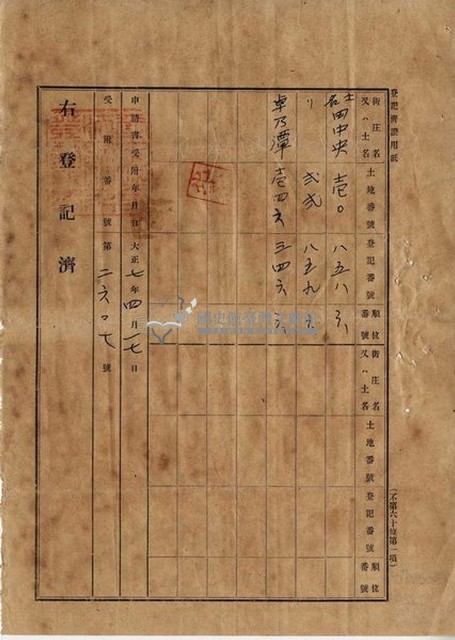 登記濟證用紙
街庄名又ハ土名 土地番號 登記番號 順位番號 街庄名又ハ土名 土地番號 登記番號 順位番號
土名田中央 壱〇 八五八 六
〃 弐弐 八五九 六
卓乃潭 壱四六 三四六 六
申請書受附年月日 大正七年四月一七日
受附番號 第二六〇七號
右登記濟
(不第六十條第一項)
國史館臺灣文獻館